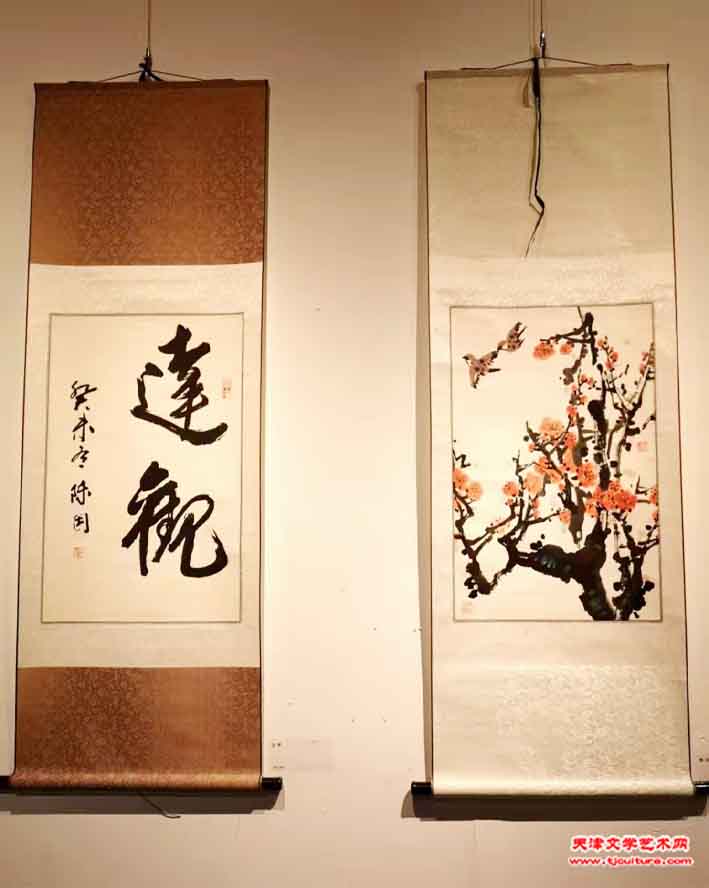 達觀
癸未冬 陈因
天津文学艺术网
www.tjculture.com